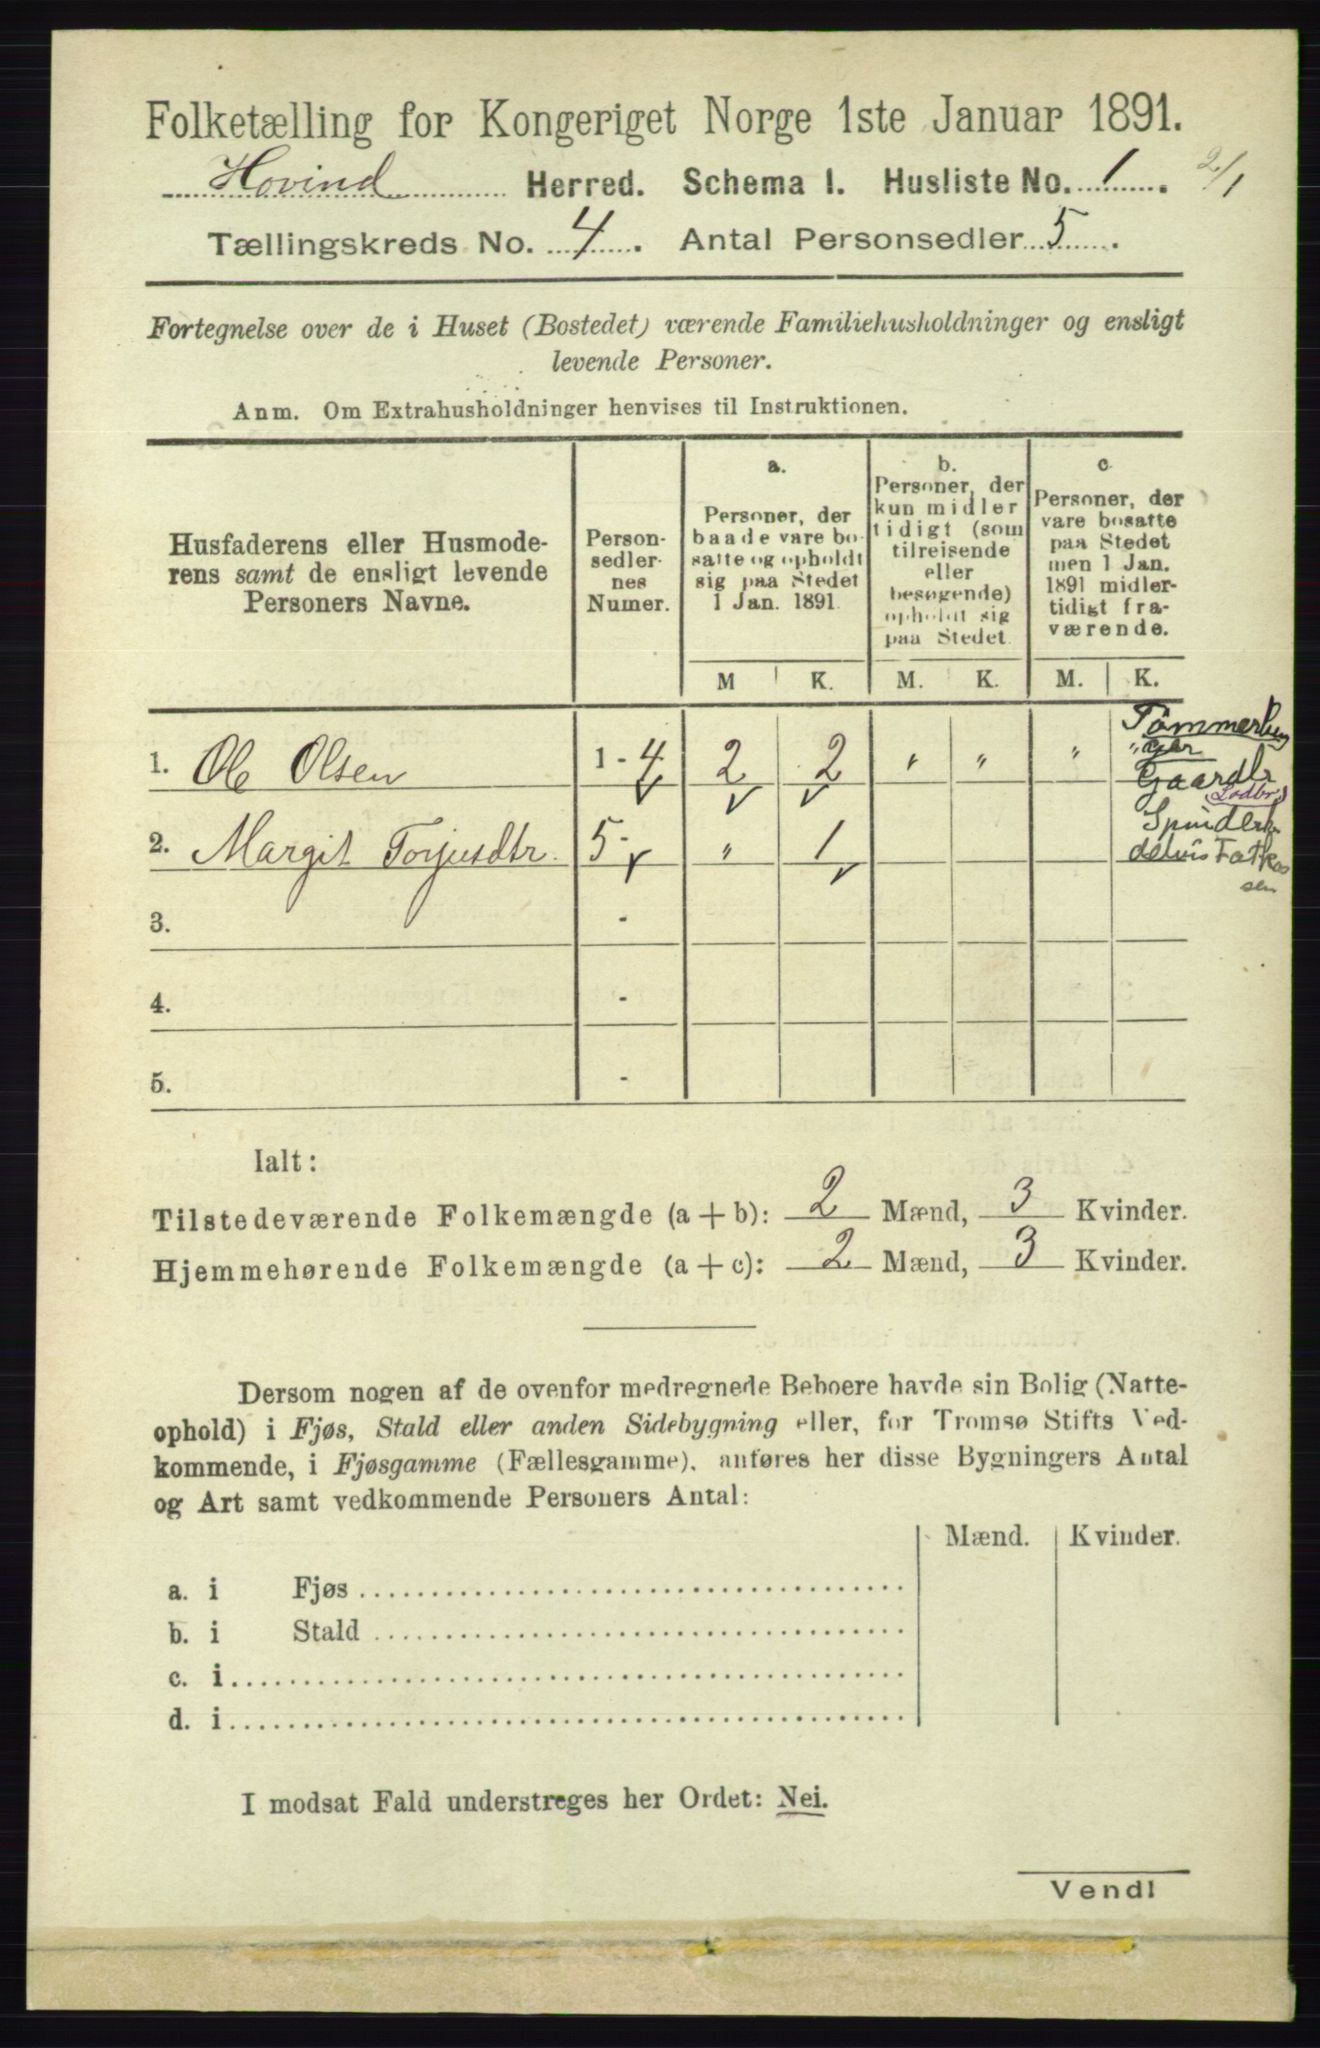 Folketælling for Kongeriget Norge 1ste Januar 1891.
Hovind Herred. Schema I. Husliste No. 1. 2/1
Tællingskreds No. 4. Antal Personsedler 5.
Fortegnelse over de i Huset (Bostedet) værende Familiehusholdninger og ensligt
levende Personer.
Anm. Om Extrahusholdninger henvises til Instruktionen.
Husfaderens eller Husmode-
rens samt de ensligt levende
Personers Navne.
Person-
sedler-
nes
Numer.
a.
Personer, der
baade vare bo-
satte og opholdt
sig paa Stedet
1 Jan. 1891.
b.
Personer, der
kun midler
tidigt (som
tilreisende
eller
besøgende)
opholdt sig
paa Stedet.
c
Personer, der
vare bosatte
paa Stedet
men 1 Jan.
1891 midler-
tidigt fra-
værende.
M K. M. K. M. K.
1. Ole Olsen 1-4 2 2 " " "
Gaardbr
2. Margit Torjusdtr. 5- " 1
delvis
3. -
4. -
5. -
Ialt:
Tilstedeværende Folkemængde (a + b): 2 Mænd, 3 Kvinder.
Hjemmehørende Folkemængde (a + c): 2 Mænd, 3 Kvinder.
Dersom nogen af de ovenfor medregnede Beboere havde sin Bolig (Natte-
ophold) i Fjøs, Stald eller anden Sidebygning eller, for Tromsø Stifts Ved-
kommende, i Fjøsgamme (Fællesgamme), anføres her disse Bygningers Antal
og Art samt vedkommende Personers Antal:
Mænd. Kvinder.
a. i Fjøs
b. i Stald
c. i
d. i
I modsat Fald understreges her Ordet: Nei.
Vend!